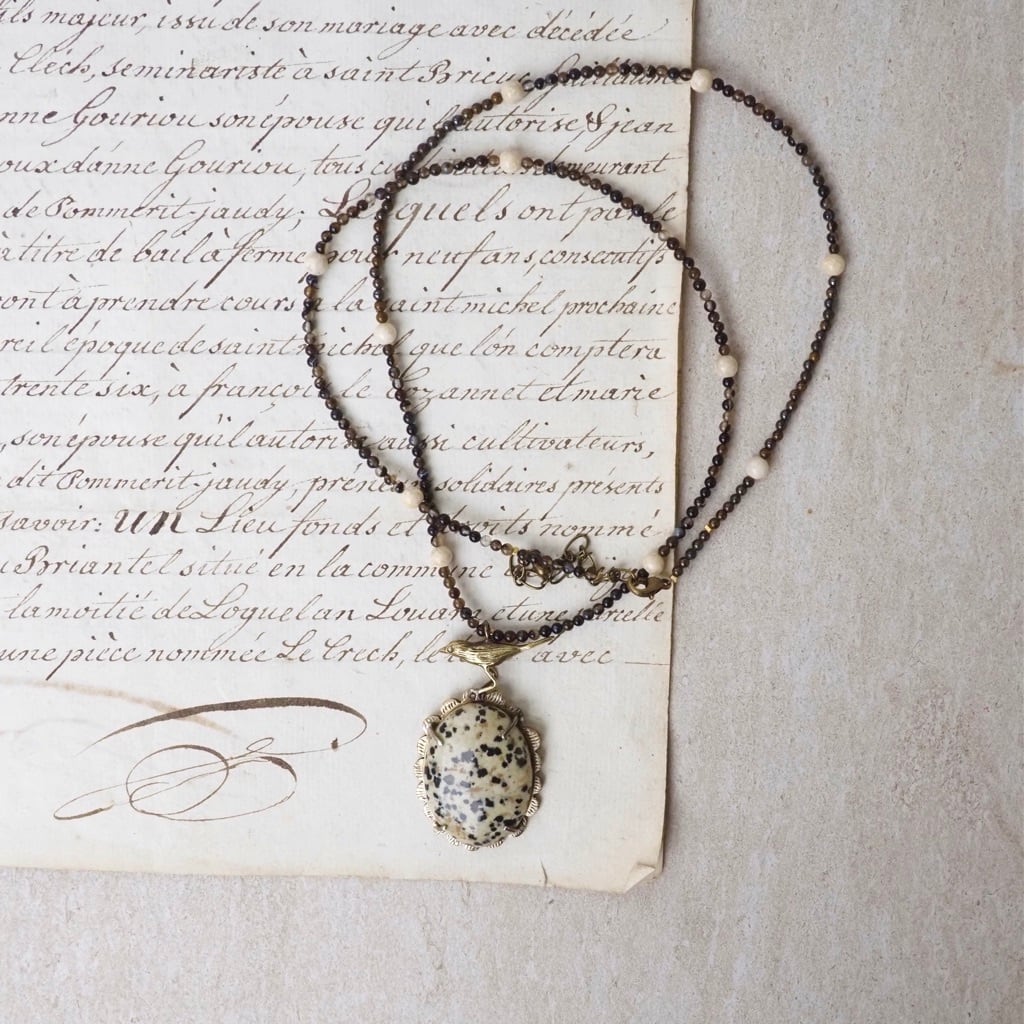 fils majeur, issu de son mariage avec décédée
Cléch, seminariste à saint Brieuc, Guillaume
nne Gouriou son épouse qui l'autorise, & jean
oux d'anne Gouriou, tous demeurant
de Pommerit-jaudy; Lesquels ont par le
à titre de bail à ferme pour neuf ans, consecutifs
ont à prendre cours à la saint michel prochaine
reil époque de saint michel que l'on comptera
trente six, à françois le Cozannet et marie
, son épouse qu'il autorise aussi cultivateurs,
dit Pommerit-jaudy, préneurs solidaires présents
savoir: UN Lieu fonds et droits nommé
Briantel situé en la commune
la moitié de Loguel an Louarn et une parcelle
une pièce nommée Le Crech, avec